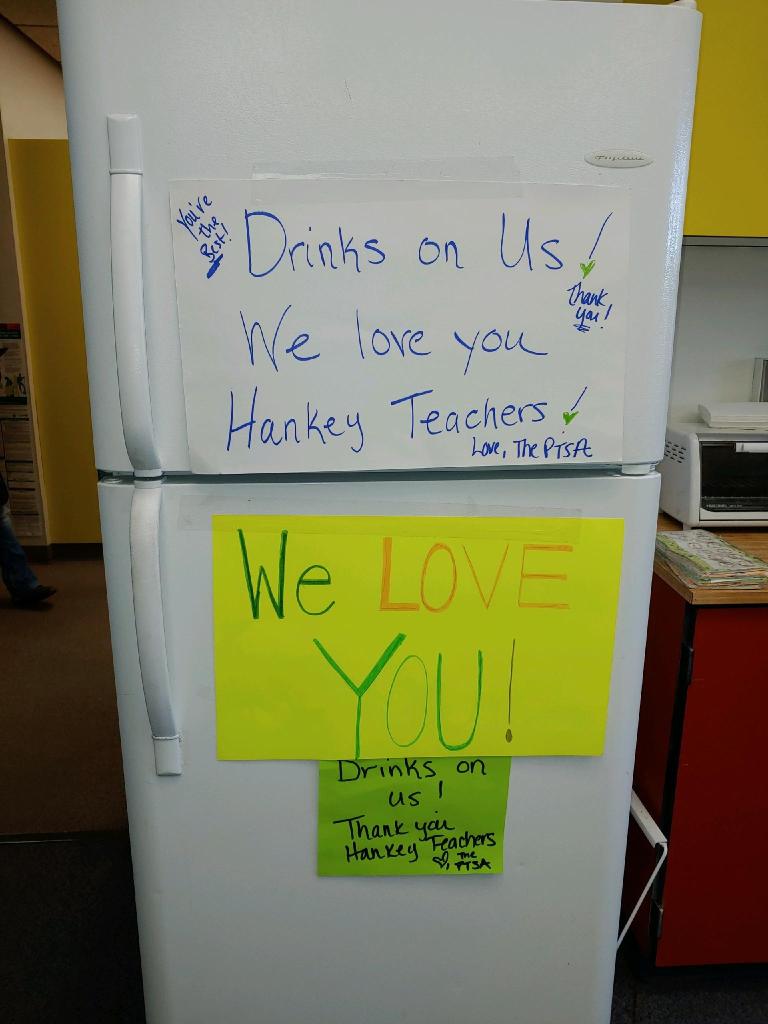 Frigidaire
You're
the
Best!
Drinks on Us!
Thank
you!
We love you
Hankey Teachers!
Love, The PTSA
We LOVE
YOU!
Drinks on
us!
Thank you
Hankey Teachers
The
PTSA